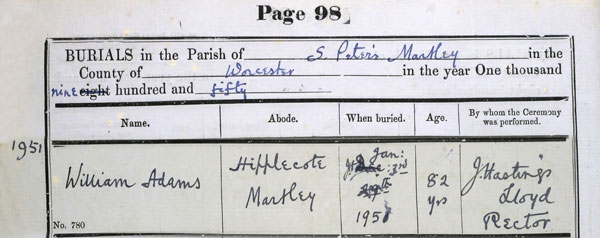 Page 98
BURIALS in the Parish of S. Peter's Martley in the
County of Worcester in the year One thousand
nine eight hundred and fifty
Name. Abode. When buried. Age. By whom the Ceremony was performed.
1951
William Adams
Hipplecote
Martley
Jan: 3rd
1951
82
yrs
J. Hastings
Lloyd
Rector
No. 780